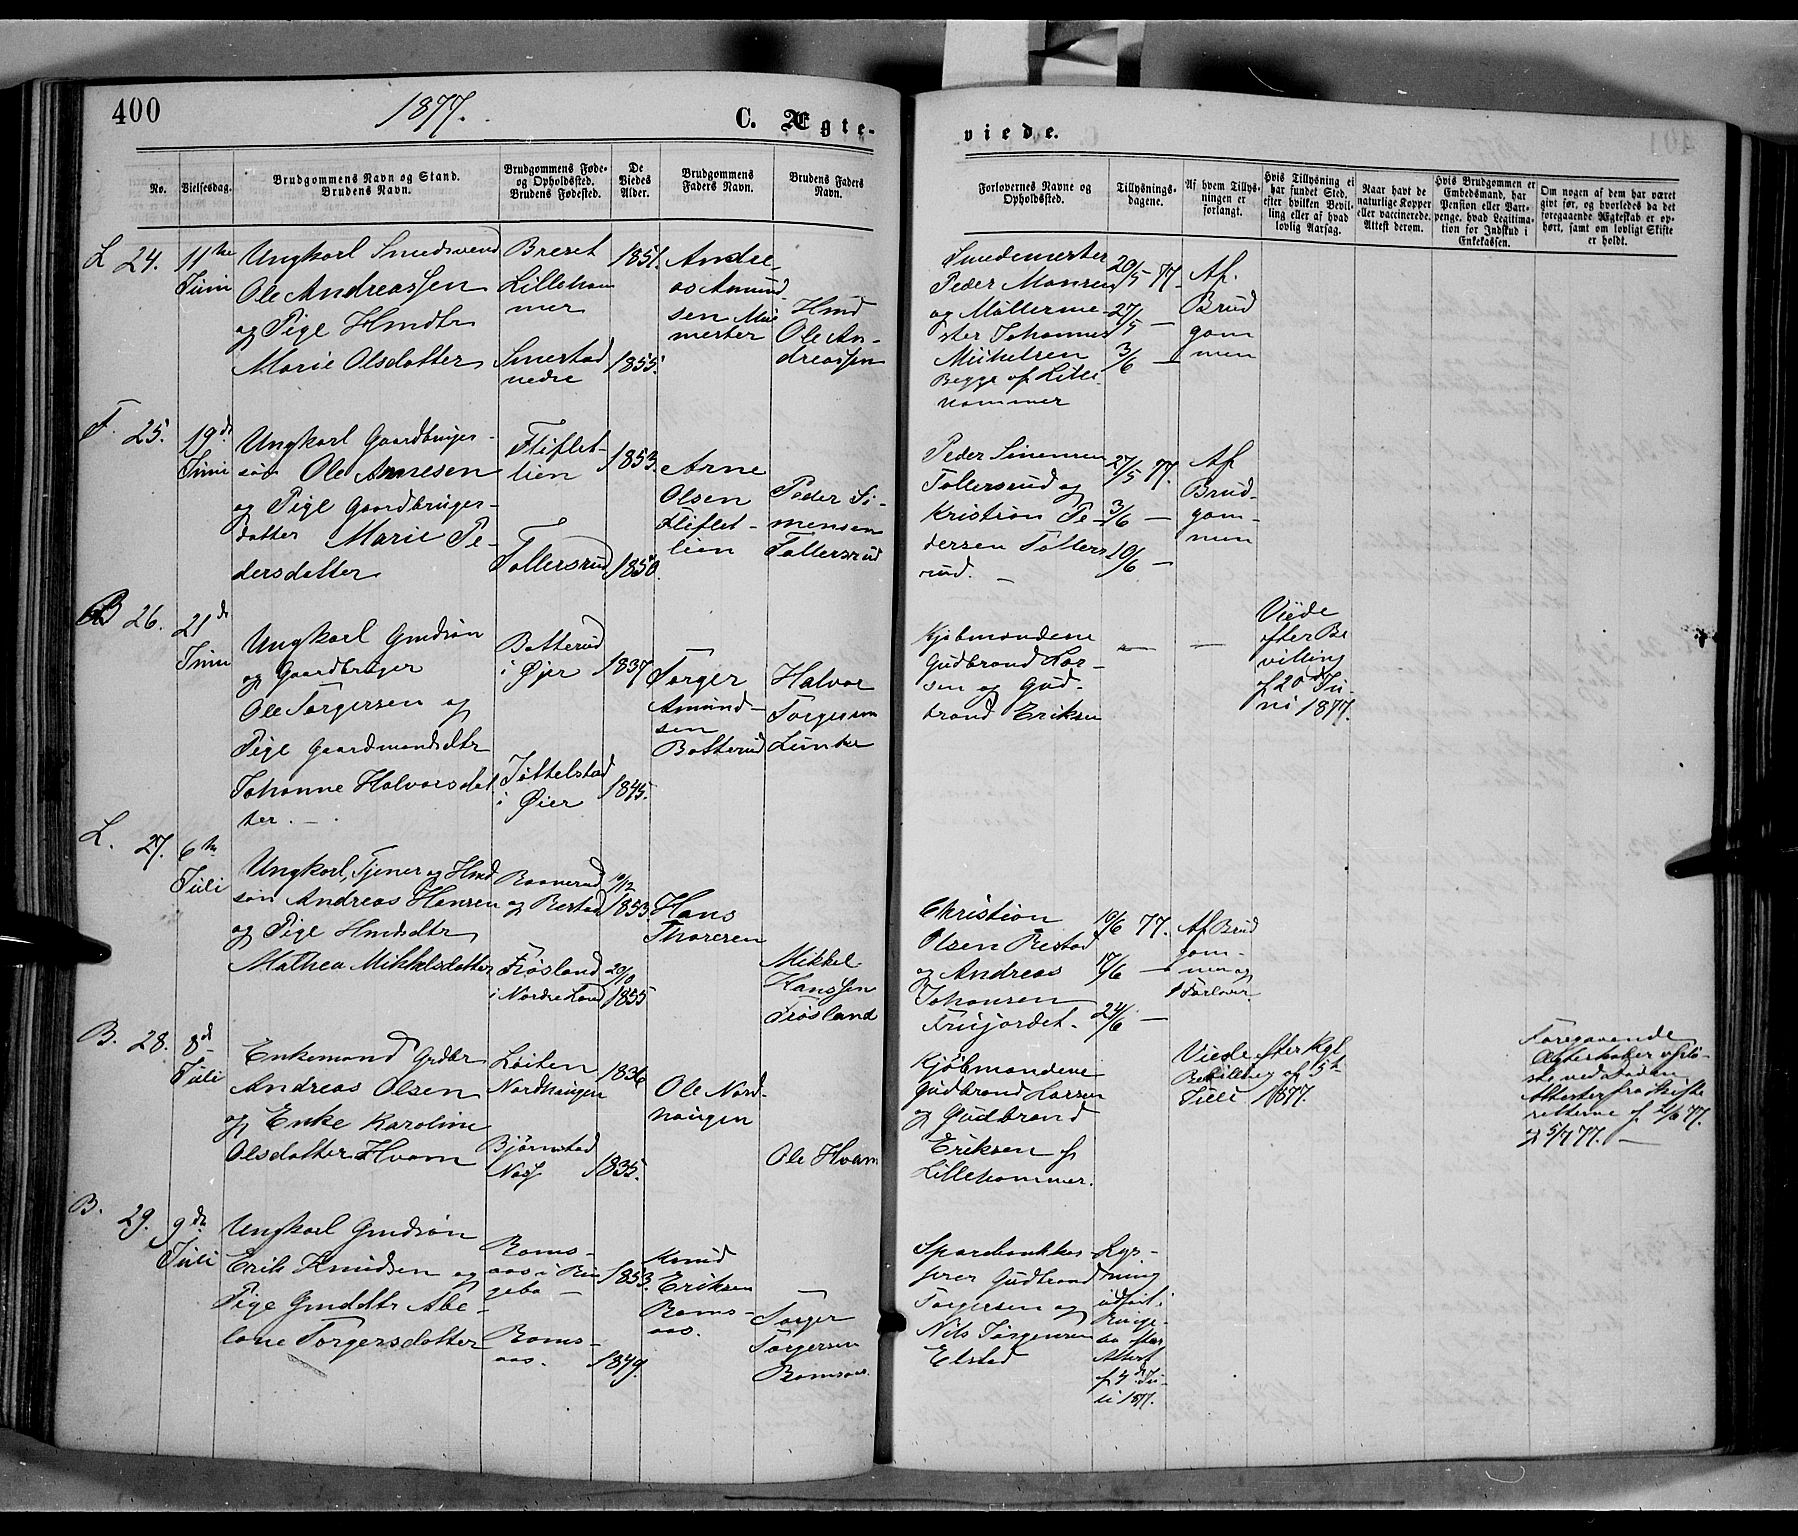 400
1877.
C. Ægte-
viede.
No.
Vielsesdag.
Brudgommens Navn og Stand.
Brudens Navn.
Brudgommens Føde-
og Opholdsted.
Brudens Fødested.
De
Viedes
Alder.
Brudgommens
Faders Navn.
Brudens Faders
Navn.
Forlovernes Navne og
Opholdsted.
Tillysnings-
dagene.
Af hvem Tillys-
ningen er
forlangt.
Hvis Tillysning ei
har fundet Sted,
efter hvilken Bevil-
ling eller af hvad
lovlig Aarsag.
Naar havt de
naturlige Kopper
eller vaccinerede.
Attest derom.
Hvis Brudgommen er
Embedsmand, har
Pension eller Vart-
penge, hvad Legitima-
tion for Indskud i
Enkekassen.
Om nogen af dem har været
givt før, og hvorledes da det
foregaaende Ægteskab er op-
hørt, samt om lovligt Skifte
er holdt.
L 24.
11te
Juni
Ungkarl Smedsvend
Ole Andreassen
og Pige Hmdtr
Marie Olsdatter
Breset
Lilleham
mer
Smestad
nedre
1851.
1855.
Andre
as Amund
sen Mur
mester
Hmd
Ole An-
dreassen
Smedemester
Peder Monsen
og Møllerme-
ster Johannes
Mikkelsen
Begge af Lille
hammer
20/5 77.
27/5 —
3/6 —
Af
Brud
gom
men
F. 25.
19de
Juni
Ungkarl Gaardbruger-
søn Ole Arnesen
og Pige Gaardbruger-
datter Marie Pe-
dersdatter
Fliflet-
lien
Tollersrud
1853.
1850.
Arne
Olsen
Fliflet-
lien
Peder Si-
mensen
Tollersrud
Peder Simensen
Tollersrud og
Kristian Pe-
dersen Tollers
rud. —
27/5 77.
3/6 —
10/6 —
Af
Brud-
gom-
men
B 26.
21de
Juni
Ungkarl Gmdsøn
og Gaardbruger
Ole Torgersen og
Pige Gaardmandsdtr
Johanne Halvorsdat
ter. —
Batterud
i Øier
Jøttelstad
i Øier
1837
1845.
Torger
Amund-
sen
Batterud
Halvor
Torgersen
Lunke
Kjøbmændene
Gudbrand Lar-
sen og Gud-
brand Eriksen
—
—
Viede
efter Be
villing
af 20de Ju-
ni 1877.
L. 27.
6te
Juli
Ungkarl, Tjener og Hmd
søn Andreas Hansen
og Pige Hmdsdtr
Mathea Mikkelsdatter
og Restad
Frøsland
i Nordre Land
1853.
1855
Hans
Thoresen
Mikkel
Hanssen
Frøsland
Christian
Olsen Restad
og Andreas
Johansen
10/6 77.
17/6 —
24/6 —
Af Brud
gom-
men og
Forlover
B. 28.
8de
Juli
Enkemand Grdbr
Andreas Olsen
og Enke Karoline
Olsdatter Hvam
Løiten
Nordhaugen
Bjørnstad
Næs
1836
1835.
Ole Nord-
haugen
Ole Hvam
Kjøbmændene
Gudbrand Larsen
og Gudbrand
Eriksen af
Lillehammer.
Viede efter Kgl
Bevilling af 5te
Juli 1877.
Foregaaende
Ægteskaber opløs-
ste ved Døden
Attester fra Skifte
retterne af 2/6 77.
og 5/7 77. —
B. 29.
9de
Juli
Ungkarl Gmdsøn
Erik Knudsen og
Pige Gmddtr Abe-
lone Torgersdatter
Roms-
aas i Rin
gebo —
Roms-
aas.
1853.
1849.
Knud
Eriksen
Roms-
aas.
Torger
Torgersen
Romsaas.
Sparebankkas-
serer Gudbrand
Torgersen og
Nils Jørgensen
Elstad
Lys-
ning
udført i
Ringe-
bu efter
Attest
af 4de Ju-
li 1877.